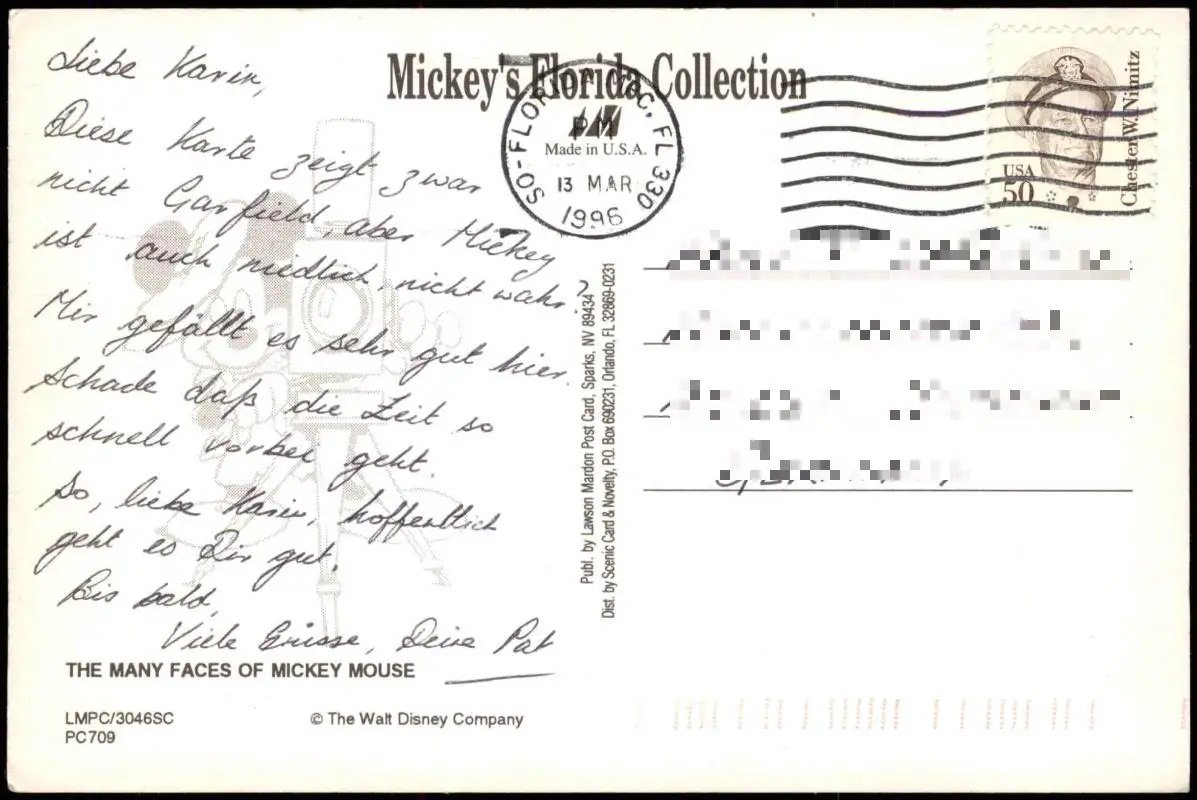 Mickey's Florida Collection
Made in U.S.A.
SO-FLORIDA P&DC, FL 330
PM
13 MAR
1996
USA
50
Chester W. Nimitz
Liebe Karin,
Diese Karte zeigt zwar
nicht Garfield, aber Mickey
ist auch niedlich, nicht wahr?
Mir gefällt es sehr gut hier.
Schade daß die Zeit so
schnell vorbei geht.
So, liebe Karin, hoffentlich
geht es Dir gut.
Bis bald,
Viele Grüsse, Deine Pat
Publ. by Lawson Mardon Post Card, Sparks, NV 89434
Dist. by Scenic Card & Novelty, P.O. Box 690231, Orlando, FL 32869-0231
THE MANY FACES OF MICKEY MOUSE
LMPC/3046SC
© The Walt Disney Company
PC709